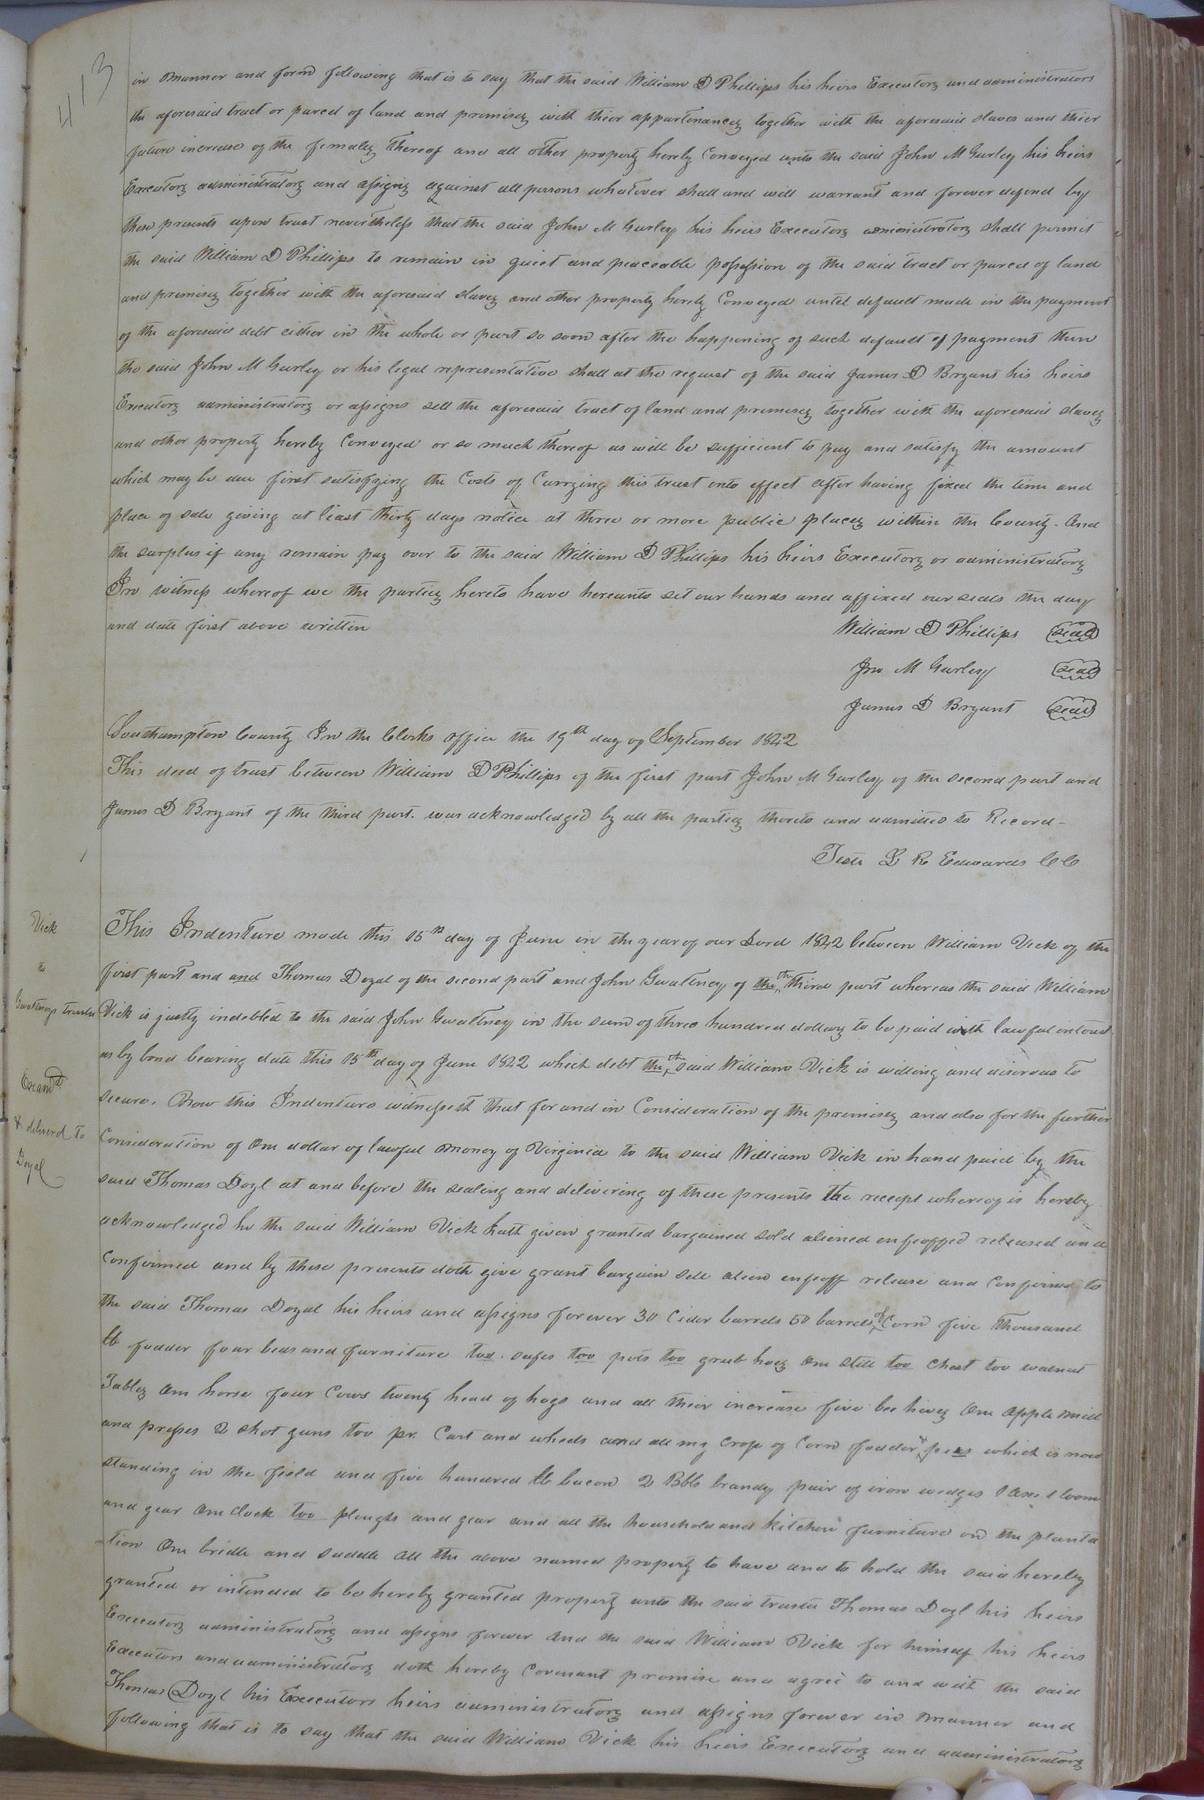 413
in manner and form following that is to say that the said William D Phillips his heirs Executors and administrators
the aforesaid tract or parcel of land and premises with thier appurtenances together with the aforesaid slaves and thier
future increase of the females thereof and all other property hereby Conveyed unto the said John M Gurley his heirs
Executors administrators and assigns against all persons whatever shall and will warrant and forever defend by
these presents upon trust nevertheless that the said John M Gurley his heirs Executors administrators shall permit
the said William D Phillips to remain in quiet and peaceable possession of the said tract or parcel of land
and premises together with the aforesaid slaves and other property hereby Conveyed until default made in the payment
of the aforesaid debt either in the whole or part so soon after the happening of such default of payment then
the said John M Gurley or his legal representative shall at the request of the said James D Bryant his heirs
Executors administrators or assigns sell the aforesaid tract of land and premises together with the aforesaid slaves
and other property hereby Conveyed or so much thereof as will be sufficient to pay and satisfy the amount
which may be due first satisfying the Costs of Carrying this trust into effect after having fixed the time and
place of sale giving at least thirty days notice at three or more public places within the County. And
the surplus if any remain pay over to the said William D Phillips his heirs Executors or administrators
In witness whereof we the parties hereto have hereunto set our hands and affixed our seals the day
and date first above written
William D Phillips seal
Jno M Gurley seal
James D Bryant seal
Southampton County In the Clerks office the 19th day of September 1842
This deed of trust between William D Phillips of the first part John M Gurley of the second part and
James D Bryant of the third part. was acknowledged by all the parties thereto and admitted to Record-
Teste L R Edwards CC
Vick
to
Gwaltneys trustee
Examd
& deliverd to
Doyel
This Indenture made this 15th day of June in the year of our Lord 1842 between William Vick of the
first part and and Thomas Doyal of the second part and John Gwaltney of the third part whereas the said William
Vick is justly indebted to the said John Gwaltney in the sum of three hundred dollars to be paid with lawful interest
as by bond bearing date this 15th day of June 1842 which debt the said William Vick is willing and disirous to
secure. Now this Indenture witnesseth that for and in Consideration of the premises and also for the further
Consideration of one dollar of lawful money of Virginia to the said William Vick in hand paid by the
said Thomas Doyl at and before the sealing and delivering of these presents the receipt whereof is hereby
acknowledged he the said William Vick hath given granted bargained sold aliened enfeoffed released and
Confirmed and by these presents doth give grant bargain sell alien enfeoff release and Confirm to
the said Thomas Doyal his heirs and assigns forever 30 Cider barrels 50 barrels of Corn five thousand
lb fodder four beds and furniture too. safes too pots too grub hoes one still too chest too walnut
Tables one horse four Cows twenty head of hogs and all thier increase five bee hives one apple mill
and presses 2 shot guns too pr. Cart and wheels and all my Crop of Corn fodder & peas which is now
standing in the field and five hundred lb bacon 2 Bbls brandy pair of iron wedges 1 axe 1 loom
and gear one clock too ploughs and gear and all the household and kitchen furniture on the planta
tion One bridle and saddle all the above named property to have and to hold the said hereby
granted or intended to be hereby granted property unto the said trustee Thomas Doyl his heirs
Executors administrators and assigns forever And the said William Vick for himself his heirs
Executors and administrators doth hereby Covenant promise and agree to and with the said
Thomas Doyl his Executors heirs administrators and assigns forever in manner and
following that is to say that the said William Vick his heirs Executors and administrators